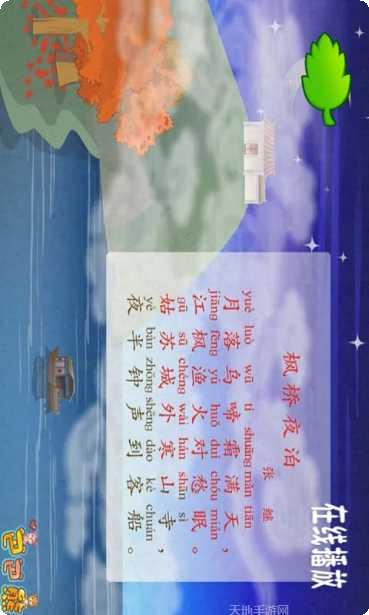 在线播放
枫桥夜泊
张继
yuè luò wū tí shuāng mǎn tiān
月落乌啼霜满天，
jiāng fēng yú huǒ duì chóu mián
江枫渔火对愁眠。
gū sū chéng wài hán shān sì
姑苏城外寒山寺，
yè bàn zhōng shēng dào kè chuán
夜半钟声到客船。
巴巴熊
天地手游网